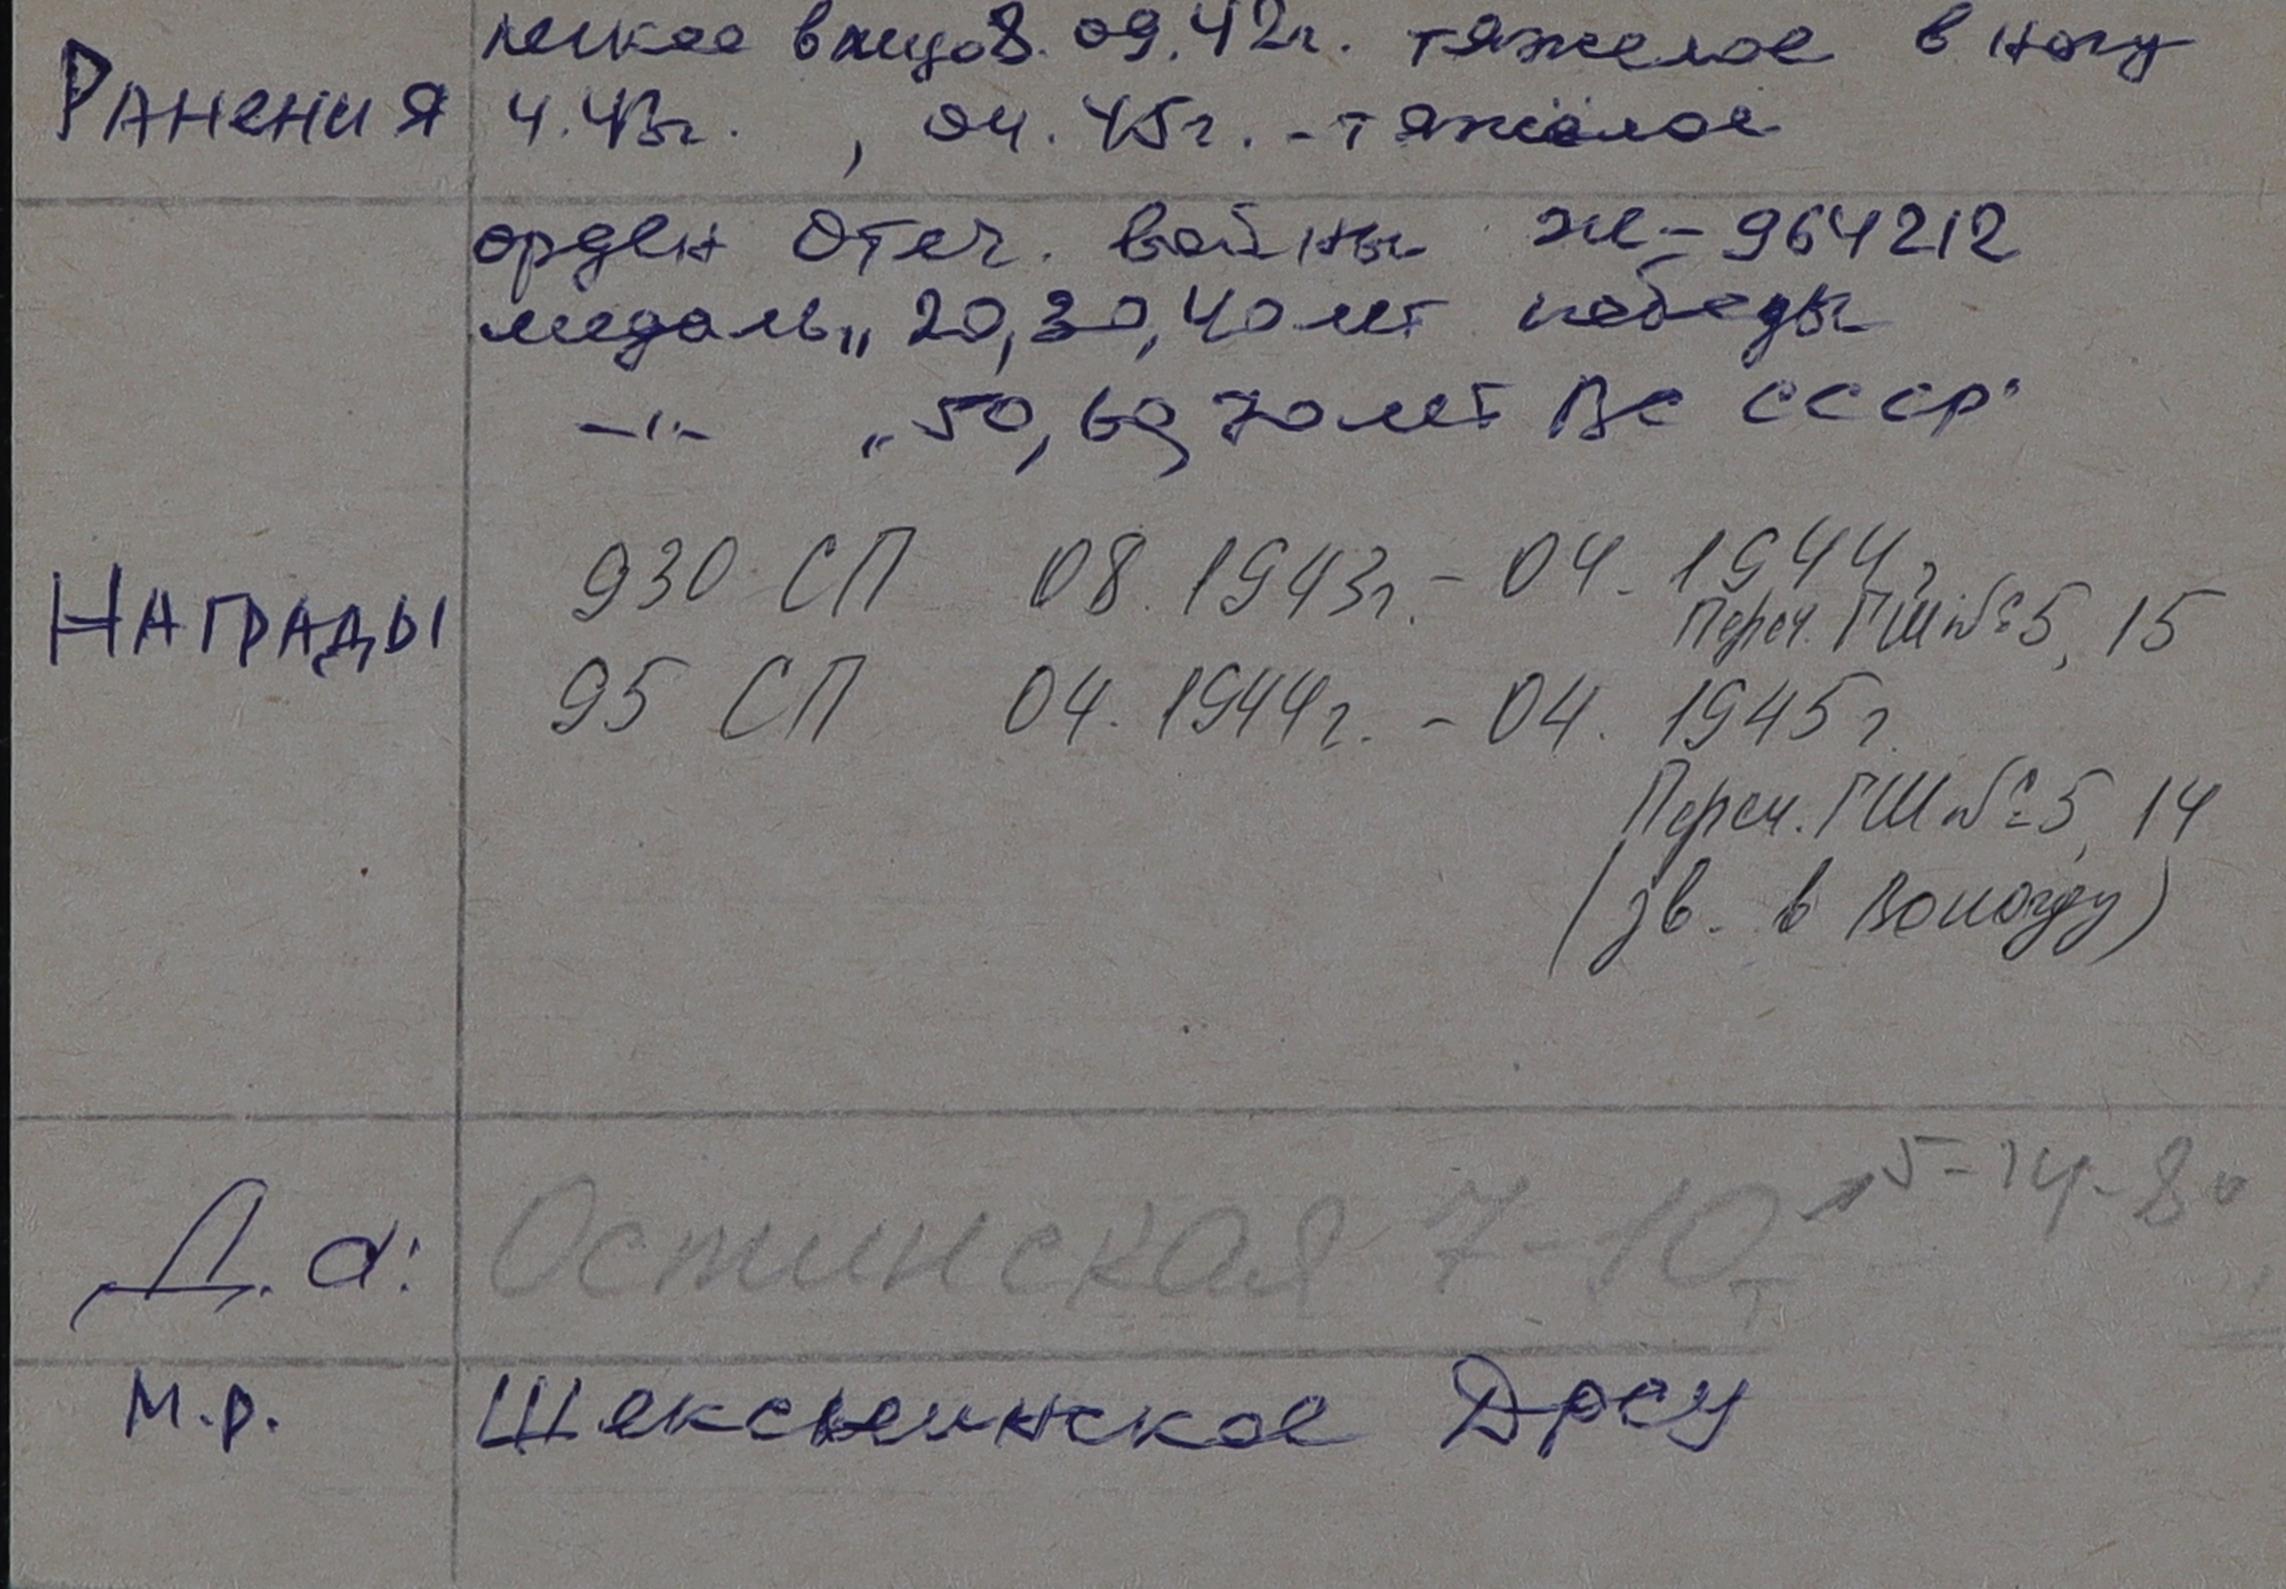 Ранения
легкое в лицо 8.09.42г. тяжелое в ногу
4.43г. , 04.45г. - тяжёлое
Награды
орден Отеч. войны № - 964212
медаль „ 20, 30, 40 лет победы
-"- „ 50, 60, 70 лет ВС СССР"
930 СП 08.1943г. - 04.1944г.
Переч. ГШ №5, 15
95 СП 04.1944г. - 04.1945г.
Переч. ГШ №5, 14
(зв. в Вологду)
Д.а:
Остинская 7-10
5-14-8
М.р.
Шекснинское Дрсу